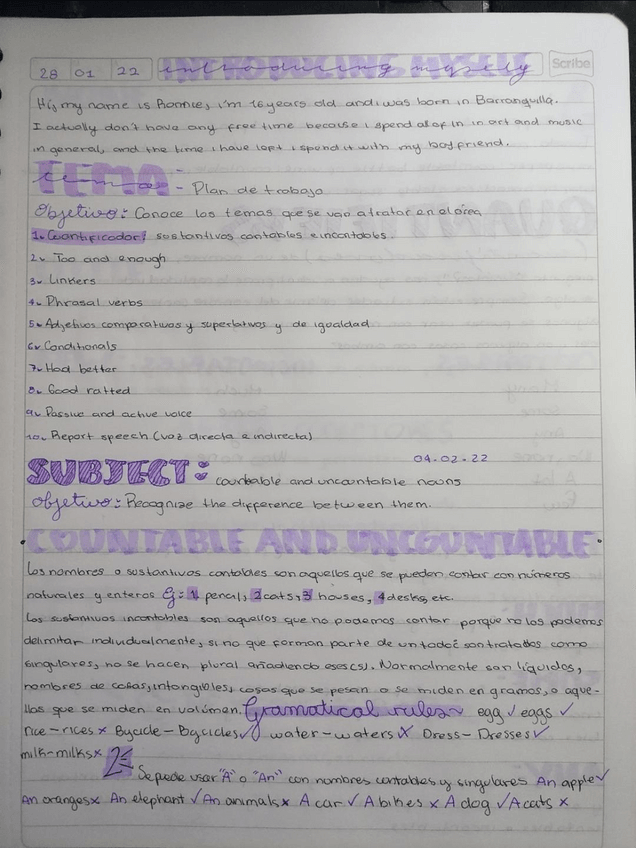 28 01 22 INTRODUCING MYSELF introducing myself Scribe
Hi, my name is Ronnie, i'm 16 years old and i was born in Barranquilla.
I actually don't have any free time because i spend all of in in art and music
in general, and the time i have left i spend it with my boyfriend.
TEMA temas - Plan de trabajo
Objetivo: Conoce los temas que se van a tratar en el área
1. Cuantificador: sustantivos contables e incontables.
2. Too and enough
3. Linkers
4. Phrasal verbs
5. Adjetivos comparativos y superlativos y de igualdad
6. Conditionals
7. Had better
8. Good ratted
9. Passive and active voice
10. Report speech (voz directa e indirecta)
04.02.22
SUBJECT: countable and uncountable nouns
Objetivo: Recognize the difference between them.
COUNTABLE AND UNCOUNTABLE
Los nombres o sustantivos contables son aquellos que se pueden contar con números
naturales y enteros Ej: 1 pencil, 2 cats, 3 houses, 4 desks, etc.
Los sustantivos incontables son aquellos que no podemos contar porque no los podemos
delimitar individualmente, si no que forman parte de un todo: son tratados como
singulares, no se hacen plural añadiendo eses (s). Normalmente son líquidos,
nombres de cosas, intangibles, cosas que se pesan o se miden en gramos, o aque-
llas que se miden en volúmen. Gramatical rules egg ✓ eggs ✓
rice - rices x Bycicle - Bycicles ✓ water - waters X Dress - Dresses ✓
milk - milks x
2 Se puede usar "A" o "An" con nombres contables y singulares An apple ✓
An oranges x An elephant ✓ An animals x A car ✓ A bikes x A dog ✓ A cats x